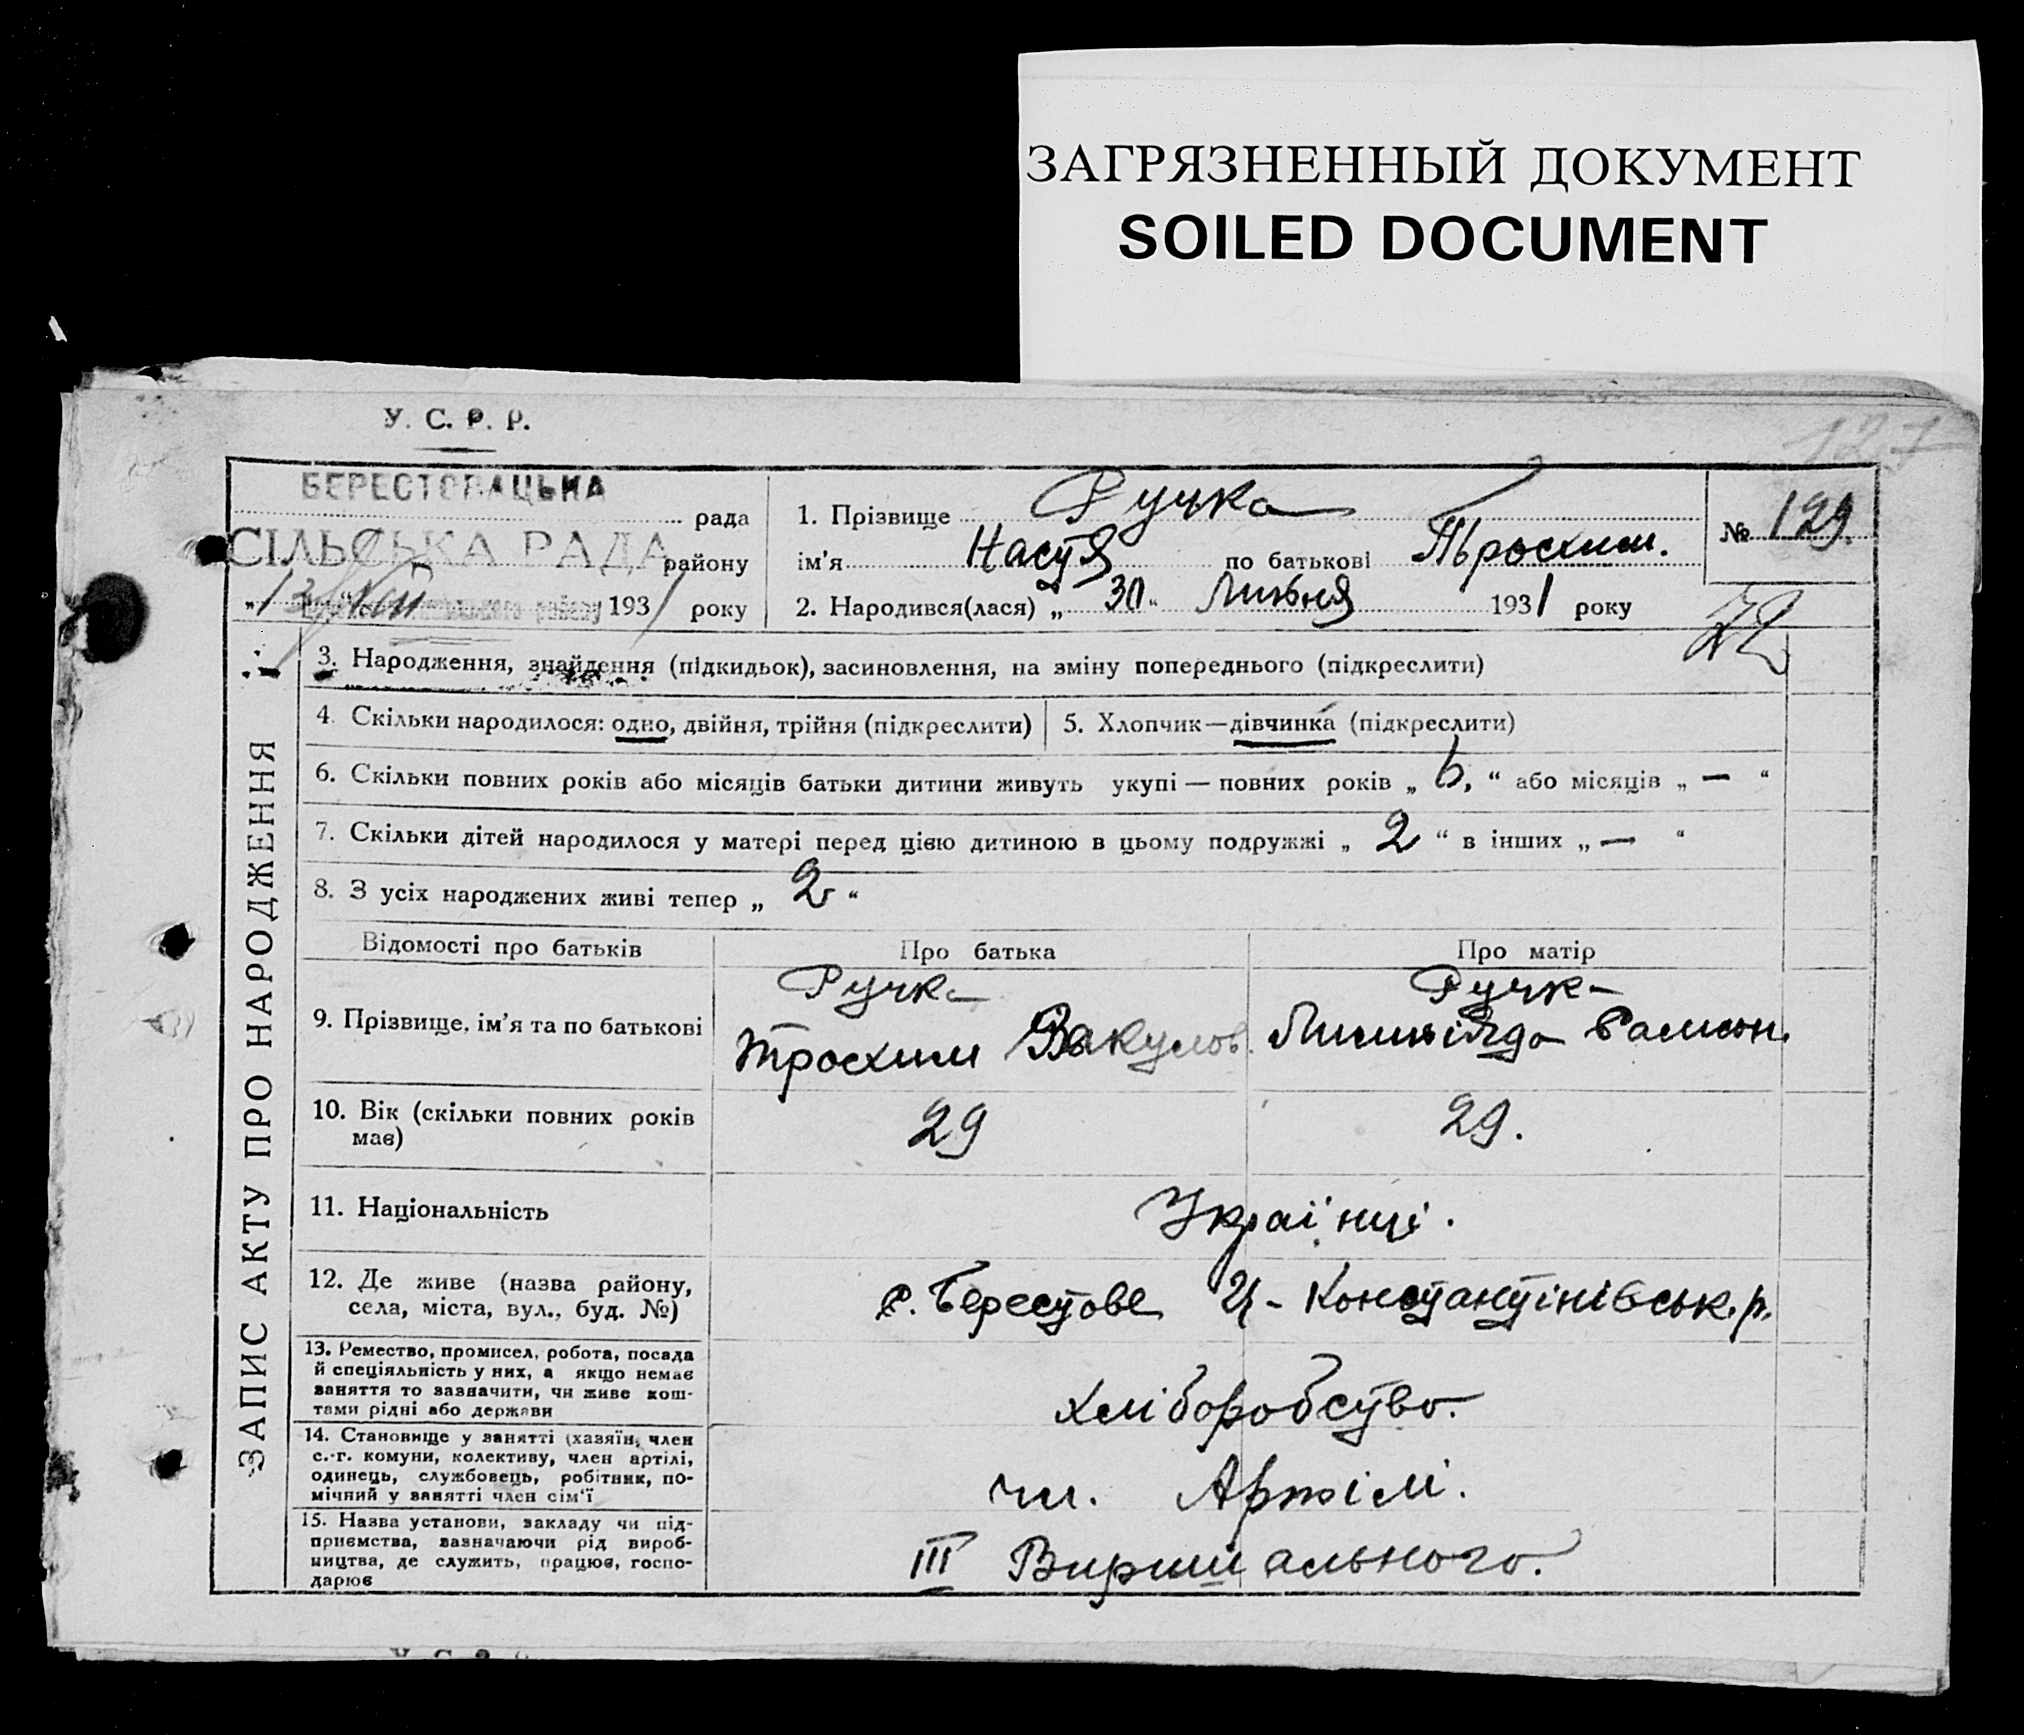 ЗАГРЯЗНЕННЫЙ ДОКУМЕНТ
SOILED DOCUMENT
127
У. С. Р. Р.
БЕРЕСТОВАЦЬКА
рада
СІЛЬСЬКА РАДА
району
1931 року
1. Прізвище Ручка
ім'я Настя по батькові Трохим.
2. Народився(лася) „ 30 “ Липня 1931 року
№ 129.
ЗАПИС АКТУ ПРО НАРОДЖЕННЯ
3. Народження, знайдення (підкидьок), засиновлення, на зміну попереднього (підкреслити)
4. Скільки народилося: одно, двійня, трійня (підкреслити)
5. Хлопчик—дівчинка (підкреслити)
6. Скільки повних років або місяців батьки дитини живуть укупі — повних років „ 6, “ або місяців „ — “
7. Скільки дітей народилося у матері перед цією дитиною в цьому подружжі „ 2 “ в інших „ — “
8. З усіх народжених живі тепер „ 2 “
Відомості про батьків
Про батька
Про матір
9. Прізвище, ім'я та по батькові
Ручка
Трохим Вакулов.
Ручка
10. Вік (скільки повних років
має)
29
29.
11. Національність
Українці.
12. Де живе (назва району,
села, міста, вул., буд. №)
с. Берестове Ч-Константінівськ. р.
13. Ремество, промисел, робота, посада
й спеціяльність у них, а якщо немає
заняття то зазначити, чи живе кош-
тами рідні або держави
хліборобство.
14. Становище у занятті (хазяїн, член
с.-г. комуни, колективу, член артілі,
одинець, службовець, робітник, по-
мічний у занятті член сім'ї
чл. Артілі.
15. Назва установи, закладу чи під-
приємства, зазначаючи рід вироб-
ництва, де служить, працює, госпо-
дарює
III Вирішального.